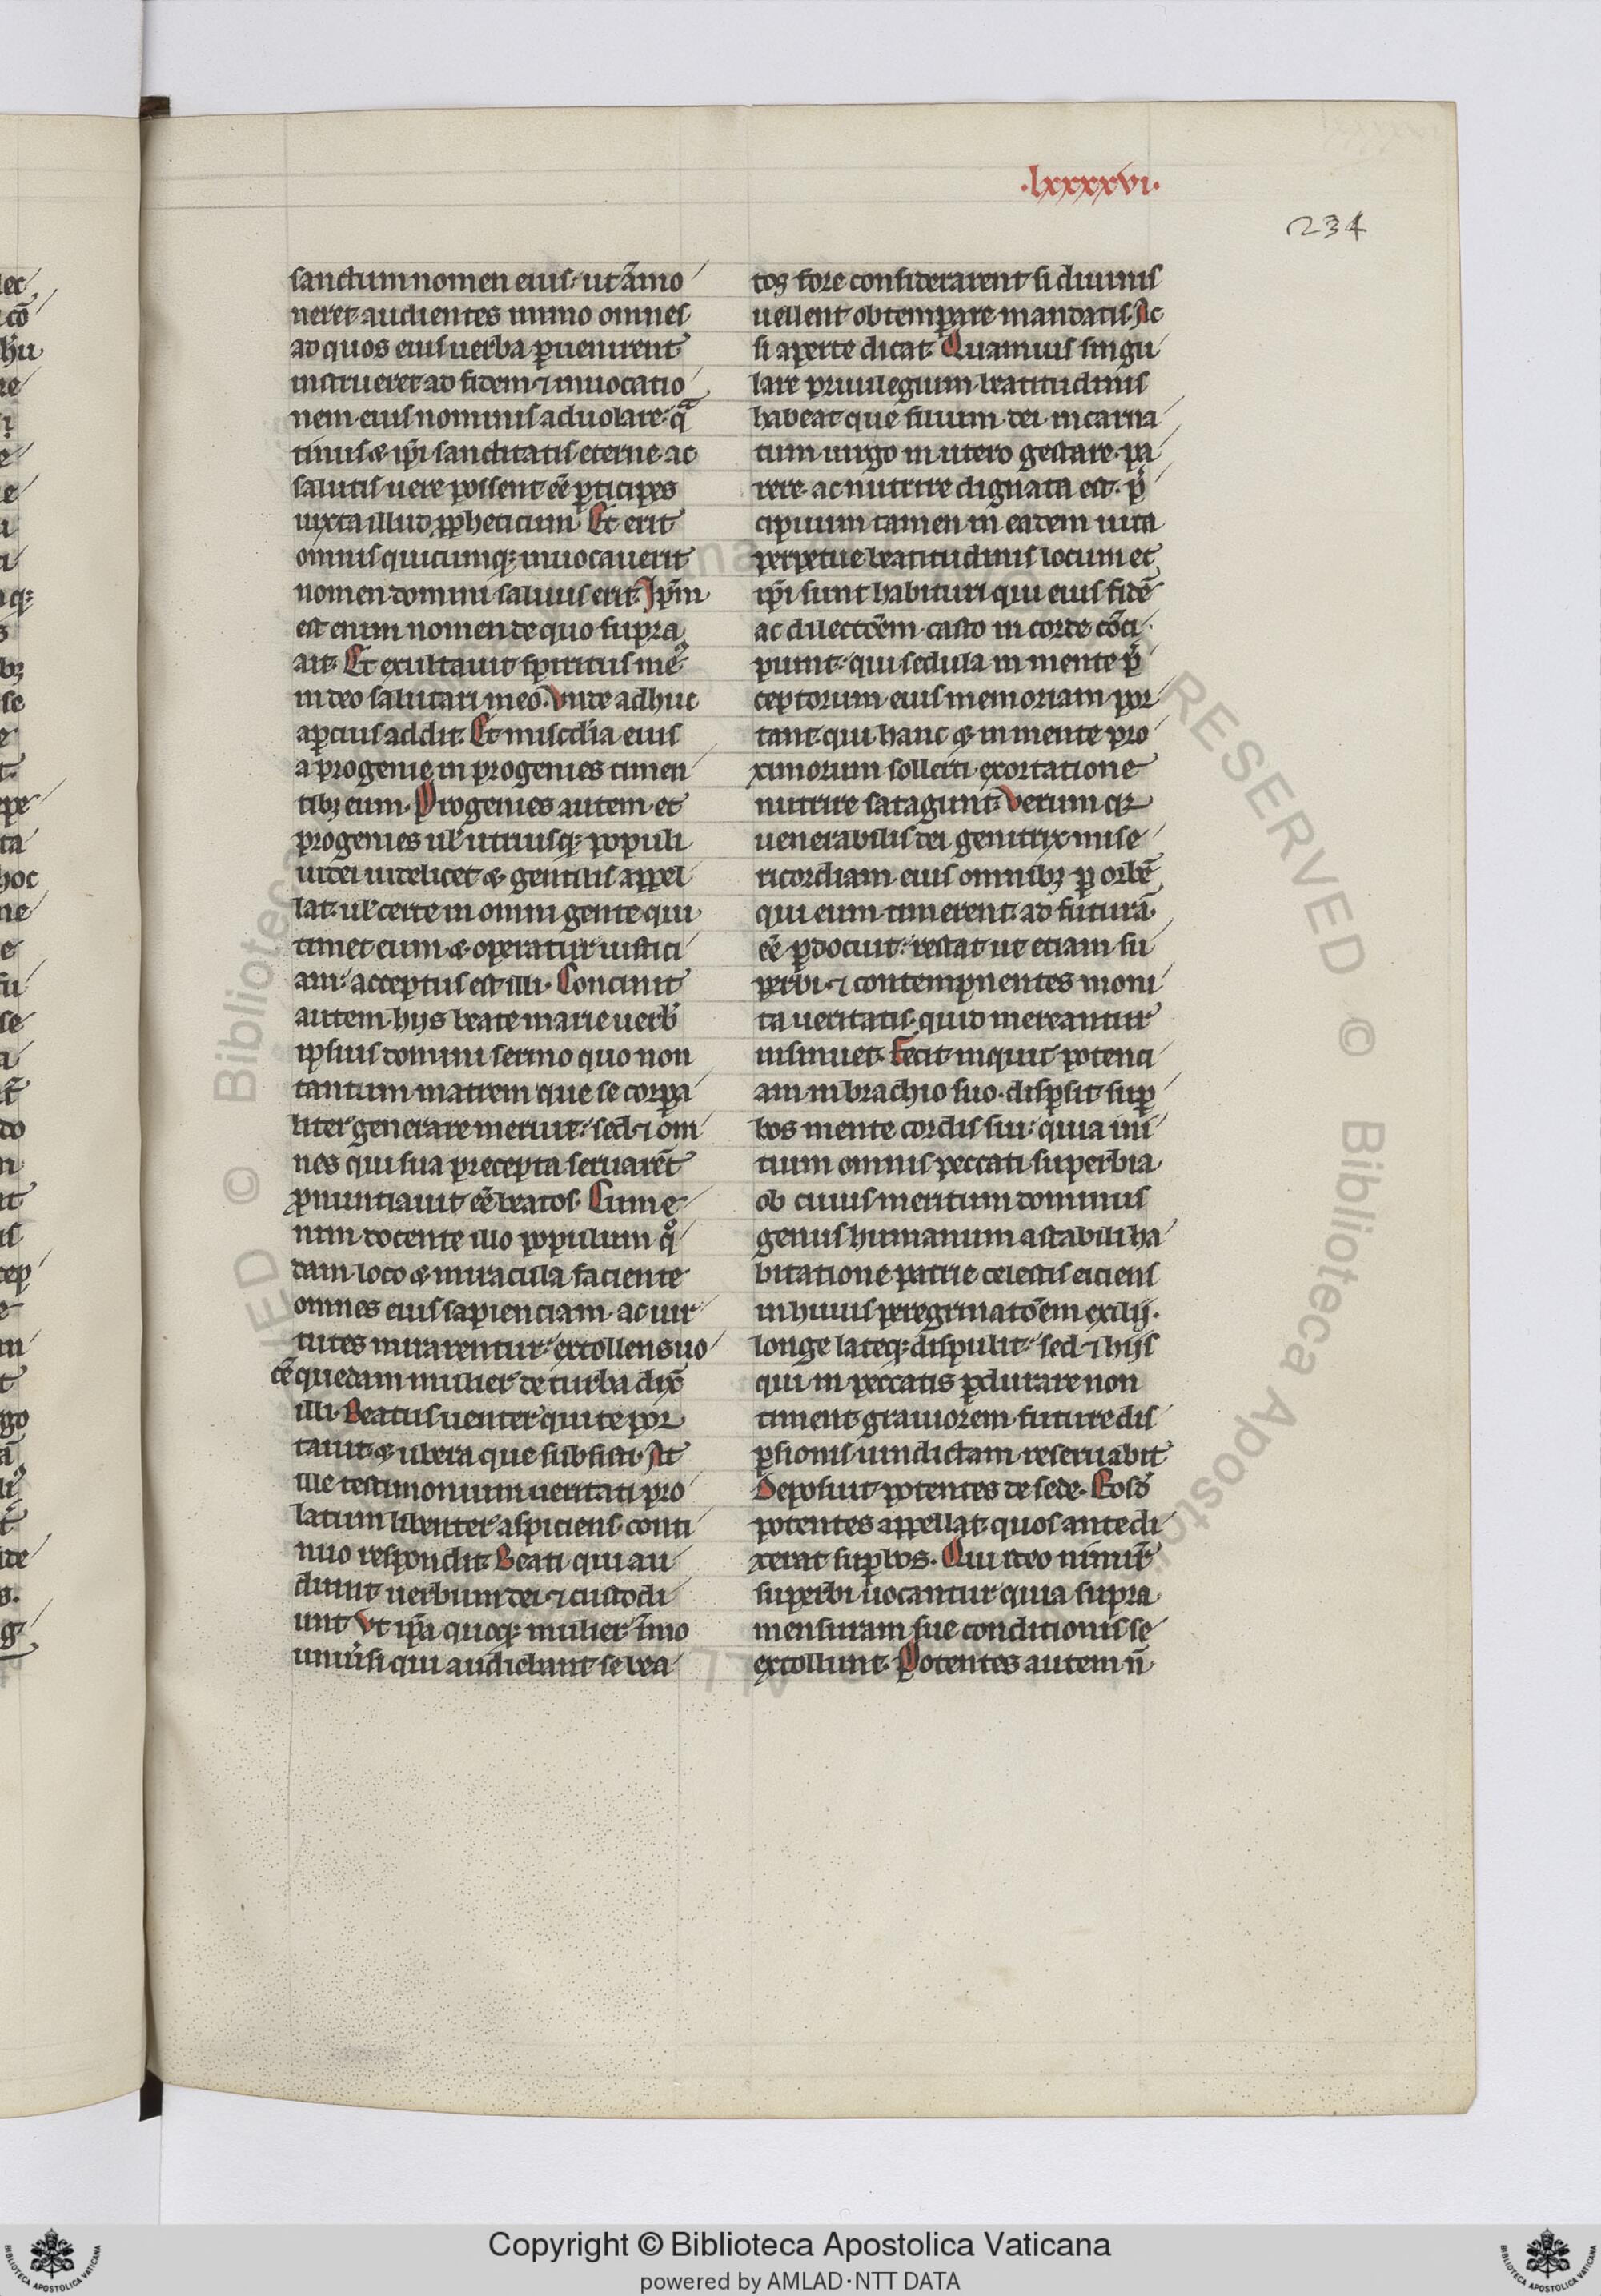 .lxxxxvi.
234
sanctum nomen eius. ut āmo
neret audientes immo omnes
ad quos eius uerba ꝑuenirent
instrueret ad fidem ⁊ inuocatio
nem eius nominis aduolare. qͣ
tinus & ip̄i sanctitatis eterne ac
salutis uere possent eē ꝑticipes
iuxta illud ꝓpheticum. Et erit
omnis quicumqꝫ inuocauerit
nomen domini saluus erit. Ip̄m
est enim nomen de quo supra
ait. Et exultauit spiritus meꝰ
in deo salutari meo. Vnde adhuc
aꝑcius addit. Et mis̄cdia eius
a progenie in progenies timen
tibꝫ eum. Progenies autem et
progenies ul' utriusqꝫ populi
iudei uidelicet & gentilis appel
lat. ul' certe in omni gente qui
timet eum & operatur iustici
am. acceptus est illi. Concinit
autem hijs beate marie uerb'
ipsius domini sermo quo non
tantum matrem que se corꝑa
liter generare meruit. sed ⁊ om
nes qui sua precepta seruarēt
ꝓnuntiauit eē beatos. Cum e
nim docente illo populum qͦ
dam loco & miracula faciente
omnes eius sapienciam. ac uir
tutes mirarentur. extollens uo
cē quedam mulier de turba dix̄
illi. Beatus uenter qui te por
tauit & ubera que subsisti. At
ille testimonium ueritati pro
latum libenter aspiciens. conti
nuo respondit. Beati qui au
diunt uerbum dei ⁊ custodi
unt. Vt ip̄a quoqꝫ mulier īmo
uniuˀsi qui audiebant se bea
tos fore considerarent si diuinis
uellent obtemꝑare mandatis. Ac
si aperte dicat. Quamuis singu
lare priuilegium beatitudinis
habeat que filium dei incarna
tum uirgo in utero gestare. pa
rere. ac nutrire dignata est. p̄
cipuum tamen in eadem uita
perpetue beatitudinis locum et
ip̄i sunt habituri qui eius fidē
ac dilectōem. casto in corde cōci
piunt. qui sedula in mente p̄
ceptorum eius memoriam por
tant. qui hanc & in mente pro
ximorum sollerti exortatione
nutrire satagunt. Verum qꝛ
uenerabilis dei genitrix mise
ricordiam eius omnibꝫ ꝑ orbē
qui eum timerent. ad futurā
eē ꝑdocuit. restat ut etiam su
perbi. ⁊ contempnentes moni
ta ueritatis. quid mereantur
insinuet. Fecit inquit potenci
am in brachio suo. disꝑsit suꝑ
bos mente cordis sui. quia ini
tium omnis peccati superbia
ob cuius meritum dominus
genus humanum a stabili ha
bitatione patrie celestis eiciens
in huius peregrinatōem exilij.
longe lateqꝫ dispulit. sed ⁊ hijs
qui in peccatis ꝑdurare non
timent grauiorem future dis
ꝑsionis uindictam reseruabit
Deposuit potentes de sede. Eosd'
potentes appellat. quos ante di
xerat suꝑbos. Qui ideo nimir̄
superbi uocantur quia supra
mensuram sue conditionis se
extollunt. Potentes autem n̄
Copyright © Biblioteca Apostolica Vaticana
powered by AMLAD·NTT DATA